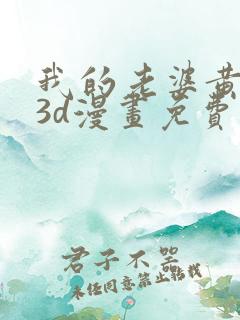 我的老婆黄
3d漫畫免費
君子不器
未经同意禁止转载